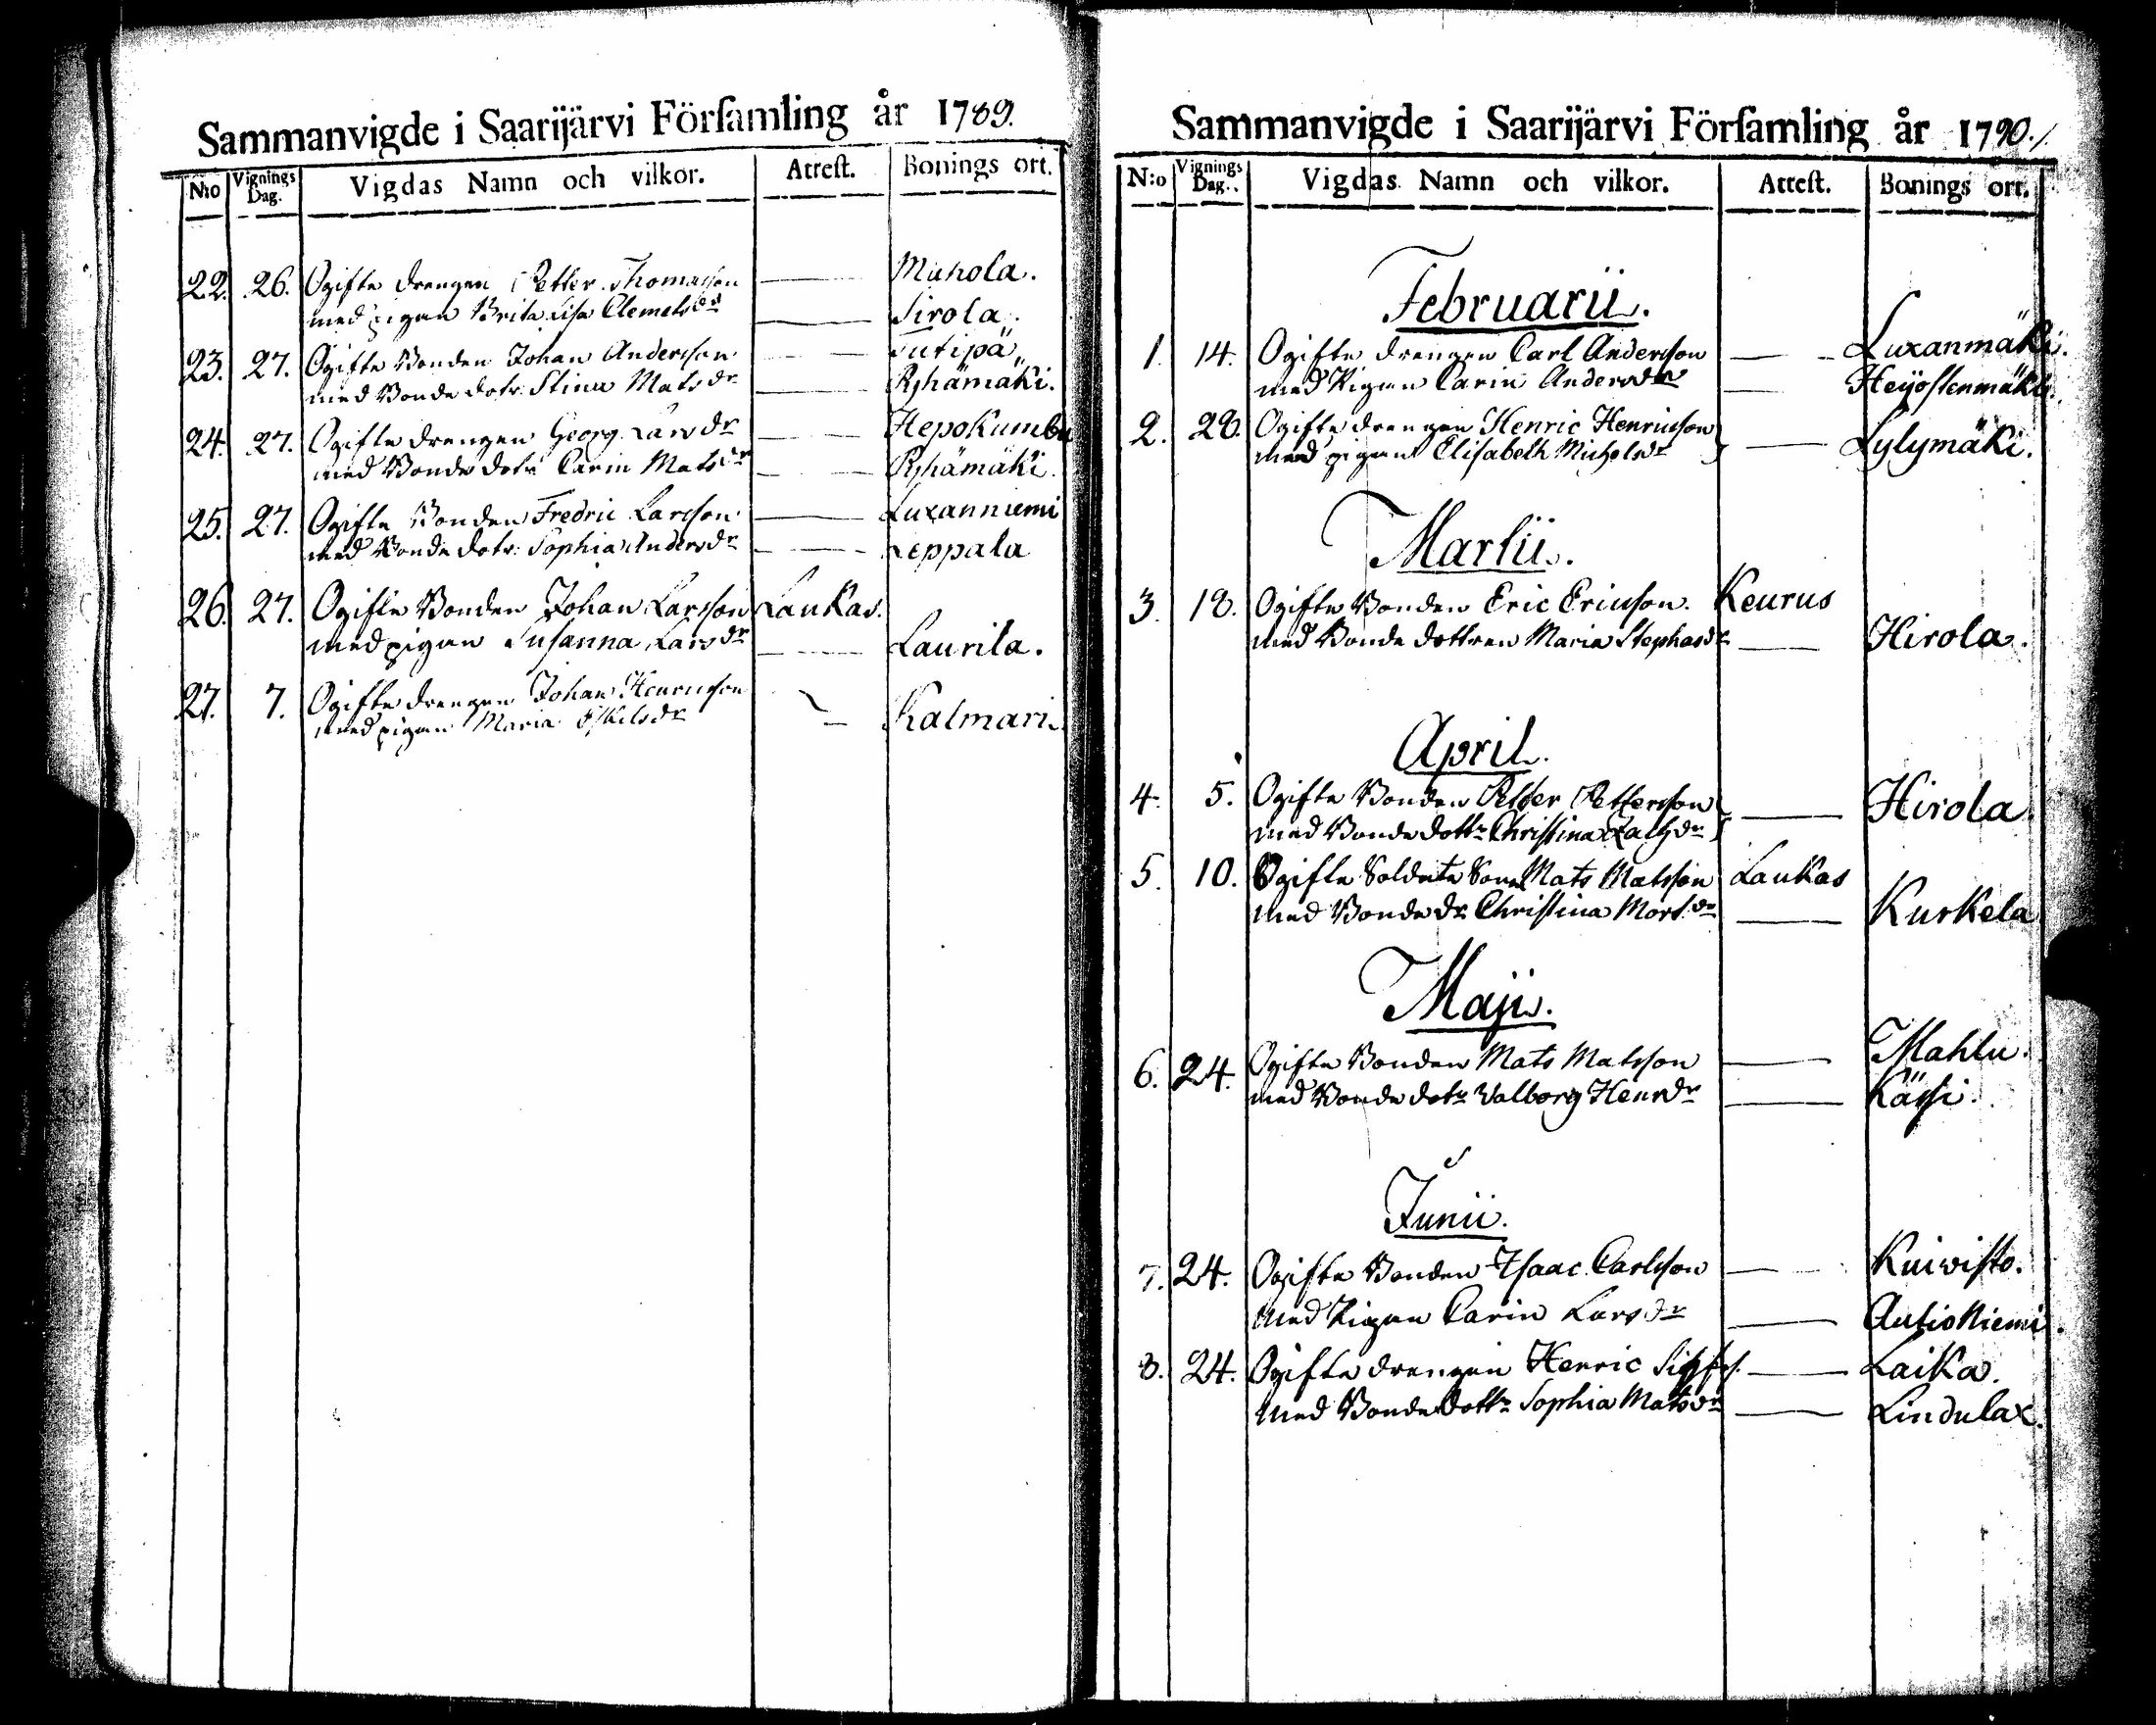 Sammanvigde i Saarijärvi Församling år 1789.
N:o Vignings Dag. Vigdas Namn och vilkor. Attest. Bonings ort.
22. 26. Ogifte drengen Petter Thomasson Muhola.
med pigan Brita Lisa Clemetsdr Sirola.
23. 27. Ogifte Bonden Johan Andersson
med Bonde dotr. Stina Matsdr Ryhämäki.
24. 27. Ogifte drengen Georg Larsdr Hepokumbu
med Bonde dotr Carin Matsdr Ryhämäki.
25. 27. Ogifte Bonden Fredric Larsson Luxanniemi
med Bonde dotr: Sophia Andersdr Leppala
26. 27. Ogifte Bonden Johan Larsson Laukas.
med pigan Susanna Larsdr Laurila.
27. 7. Ogifte drengen Johan Henricsson
med pigan Maria Eskilsdr Kalmari.
Sammanvigde i Saarijärvi Församling år 1790./.
N:o Vignings Dag. Vigdas Namn och vilkor. Attest. Bonings ort.
Februarii.
1. 14. Ogifte drengen Carl Andersson Luxanmäki.
med Pigan Carin Andersdr Heijostenmäki.
2. 28. Ogifte drengen Henric Henricsson
med pigan Elisabeth Michelsdr Lylymäki.
Martii.
3. 18. Ogifte Bonden Eric Ericsson. Keurus
med Bonde dottren Maria Stephasdr Hirola.
April.
4. 5. Ogifte Bonden Petter Pettersson Hirola.
med Bonde dottr Christina Zachdr
5. 10. Ogifte Soldate Sonen Mats Matsson Laukas
med Bonde dr Christina Mortdr Kuskela
Maji.
6. 24. Ogifte Bonden Mats Matsson Mahlu.
med Bonde dotr Walborg Henrdr Kässi.
Junii.
7. 24. Ogifte Bonden Isaac Carlsson Kuivisto.
med Pigan Carin Larsdr Autioniemi.
8. 24. Ogifte drengen Henric Laika.
med Bonde dottr Sophia Matsdr Lindulax.